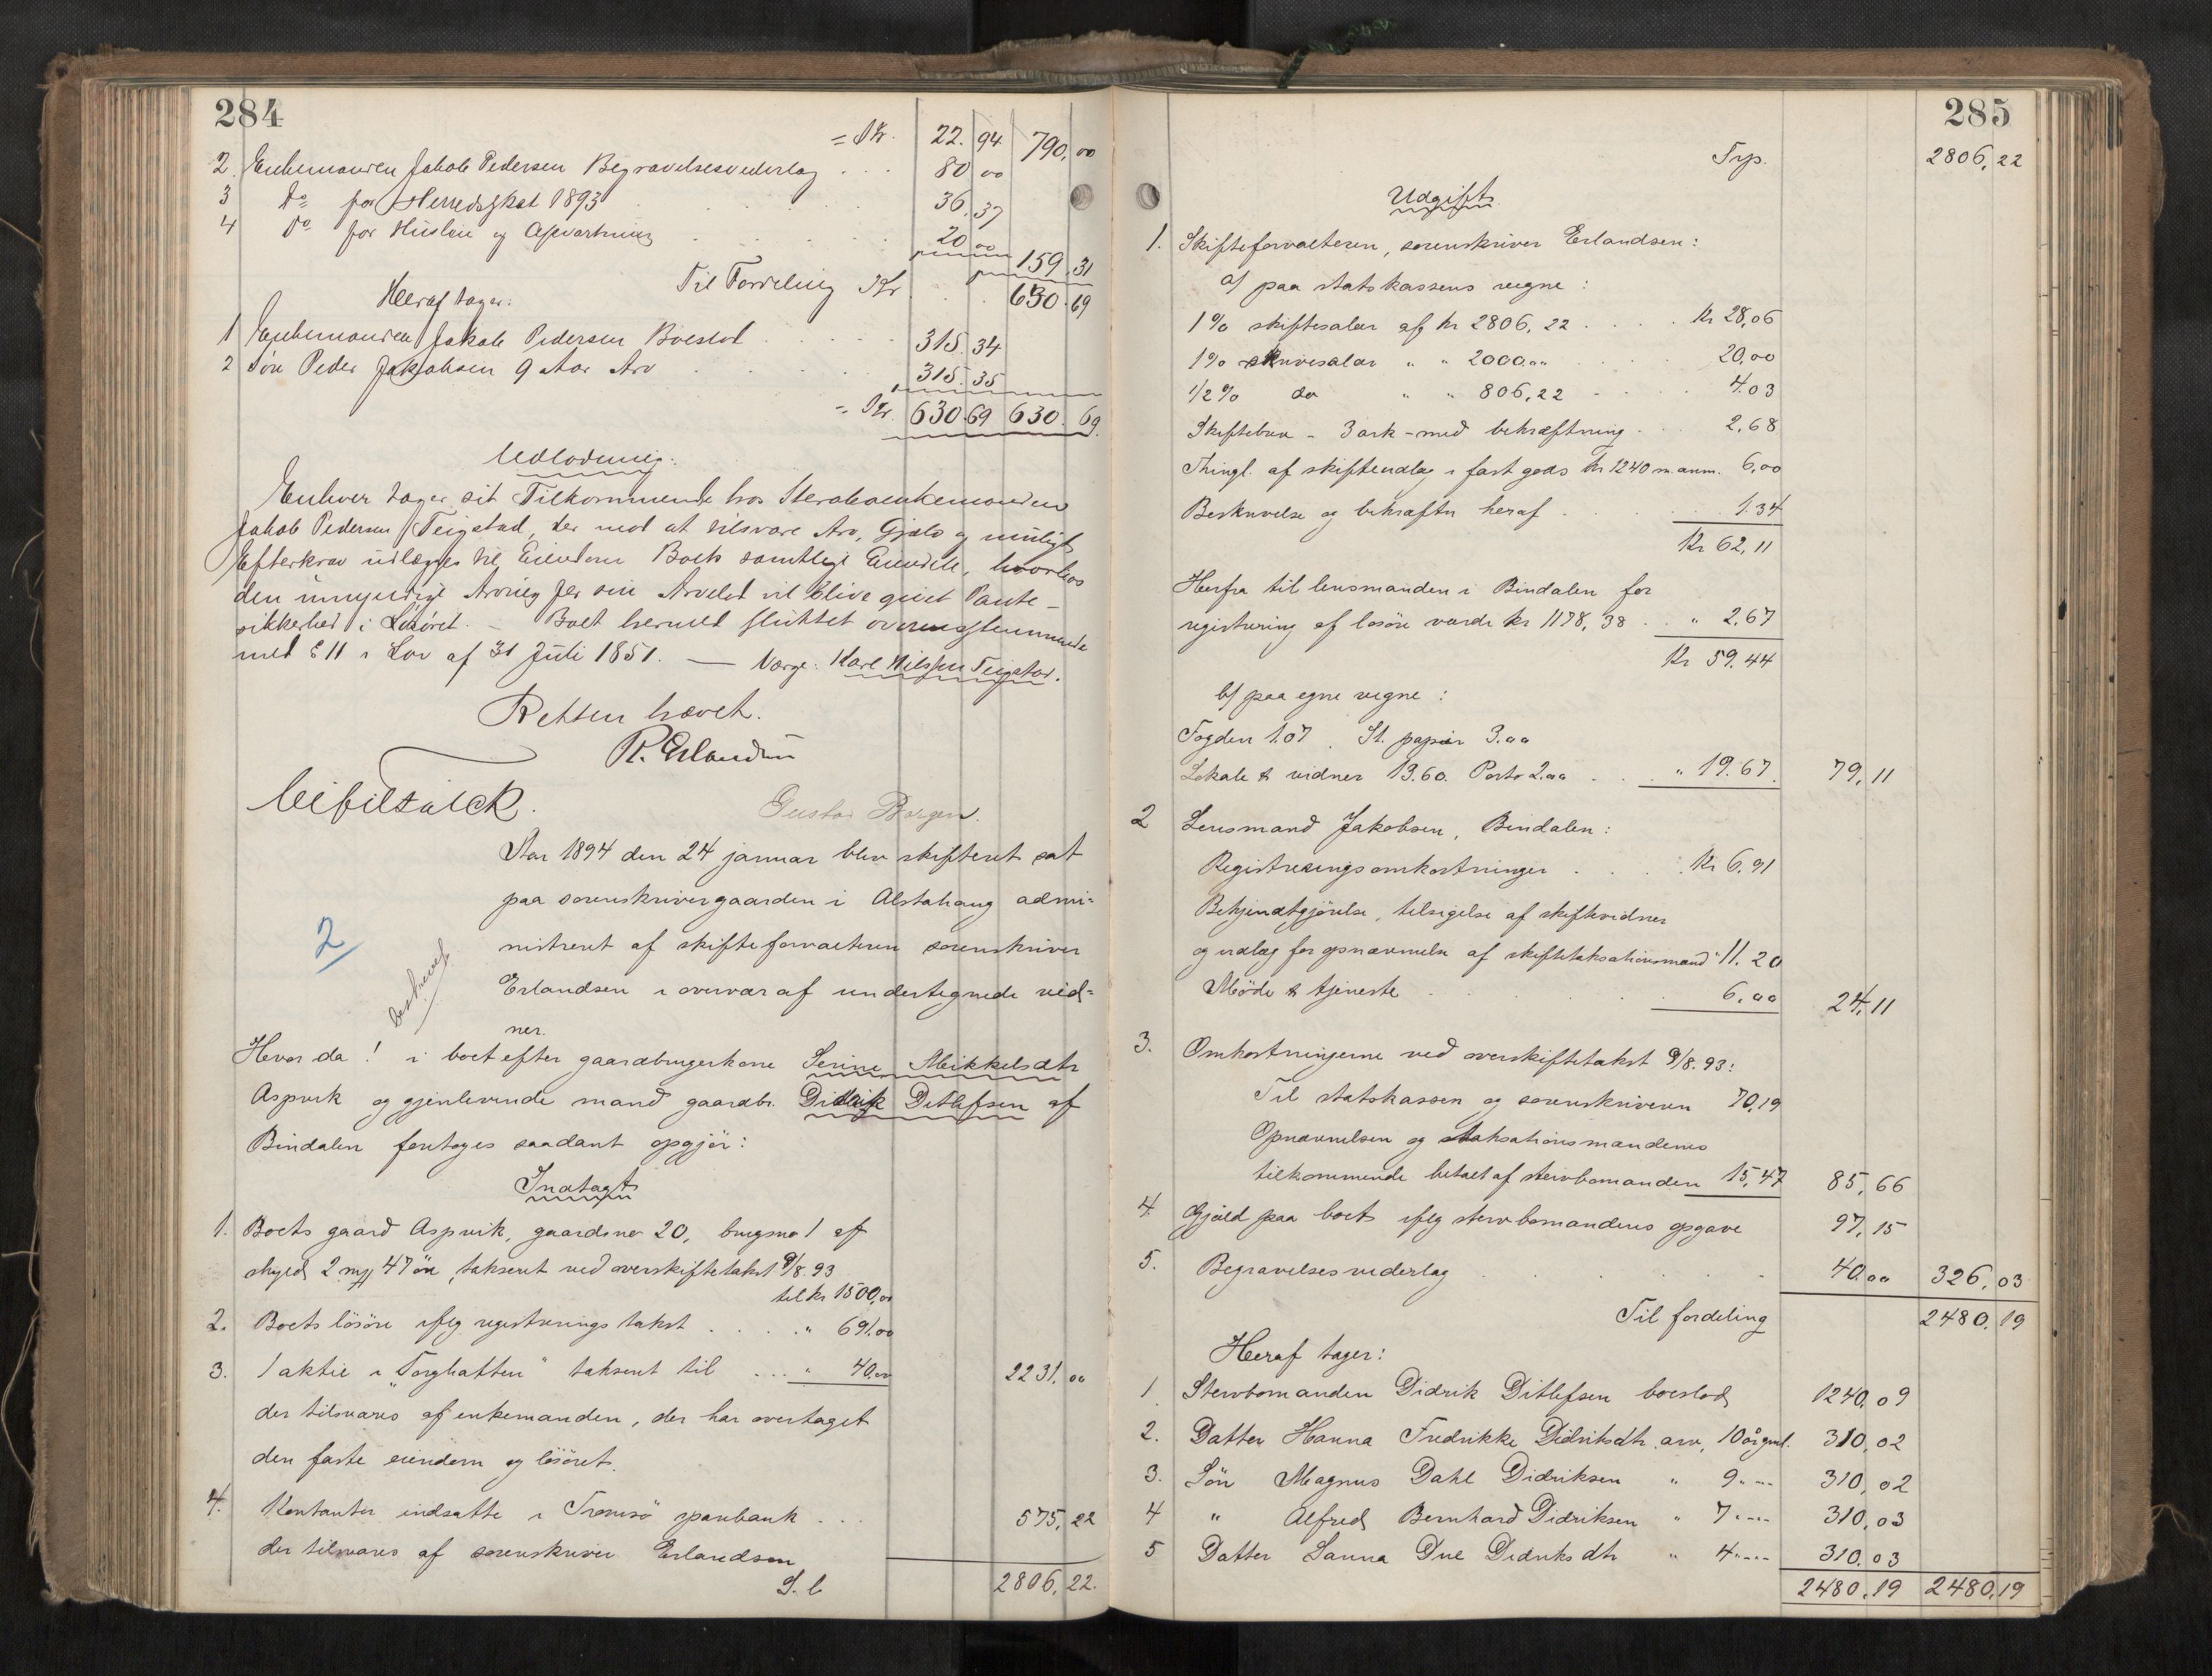 284
= Kr. 22.94 790,00
2. Enkemanden Jakob Pedersen Begravelsesvederlag . . . 80 00
3 Do for Herredsskat 1893 36,37
4 Do for Husleie og Opvartning 20 00
159.31
Til Fordeling Kr 630.69
Heraf tager:
1 Enkemanden Jakob Pedersen Boeslod 315.34
2 Søn Peder Jakobsen 9 Aar Arv 315.35
= Kr. 630.69 630.69.
Udlodning:
Enhver tager sit Tilkommende hos Sterboenkemanden
Jakob Pedersen Teigstad, der mod at tilsvare Arv, Gjæld og muligt
Efterkrav udlægges til Eiendom Boets samtlige Eiendele, hvorhos
den umyndige Arving for sin Arvelod vil blive givet Pante-
sikkerhed i Løsøret. – Boet hermed sluttet overensstemmende
med § 11 i Lov af 31 Juli 1851. — Værge: Karl Nilssen Teigstad.
Retten hævet.
R. Erlandsen
Gustav Borgen.
Aar 1894 den 24 januar blev skifteret sat
paa sorenskrivergaarden i Alstahaug admi-
nistreret af skifteforvalteren sorenskriver
Erlandsen i overvær af undertegnede vid-
ner.
2
beskrevet
Hvor da! i boet efter gaardbrugerkone Serine Mikkelsdtr
Aspvik og gjenlevende mand gaardbr. Didrik Ditlefsen af
Bindalen foretoges saadant opgjør:
Indtægt
1. Boets gaard Aspvik, gaardsno 20, brugsno 1 af
skyld 2 mk 47 øre, takseret ved overskiftetakst 9/8.93
til kr 1500,00
2. Boets løsøre iflg registreringstakst . . . . " 691.00
3. 1 aktie i "Torghatten" takseret til . . . " 40.00 2231.00
der tilsvares af enkemanden, der har overtaget
den faste eiendom og løsøret.
4. Kontanter indsatte i Tromsø sparebank . . . 575,22
der tilsvares af sorenskriver Erlandsen
S. l 2806,22.
285
Trp. 2806,22
Udgift.
1. Skifteforvalteren, sorenskriver Erlandsen:
a/ paa statskassens vegne:
1% skiftesalær af kr 2806,22 . . . . kr 28,06
1% skrivesalær " " 2000.00 20,00
1/2% do " " 806,22 4.03
Skiftebrev – 3 ark – med bekræftning 2,68
Thingl. af skifteudlæg i fast gods kr 1240 m. anm. 6,00
Beskrivelse og bekræftn heraf 1.34
Kr 62,11
Herfra til lensmanden i Bindalen for
registrering af løsøre værdi kr 1178,38 . . " 2,67
Kr 59.44
b/ paa egne vegne:
Fogden 1.07. St. papir 3.00
Lokale & vidner 13.60. Porto 2.00 . . " 19.67. 79,11
2 Lensmand Jakobsen, Bindalen:
Registreringsomkostninger . . . . Kr 6,91
Bekjendtgjørelse, tilsigelse af skiftevidner
og udlæg for opnævnelse af skiftetaksationsmænd " 11.20
Møde & tjeneste 6,00 24,11
3. Omkostningerne ved overskiftetakst 9/8.93:
Til statskassen og sorenskriveren 70,19
Opnævnelsen og taksationsmændenes
tilkommende betalt af stervbomanden 15,47 85,66
4. Gjæld paa boet iflg stervbomandens opgave 97,15
5. Begravelsesvederlag 40.00 326,03
Til fordeling 2480.19
Heraf tager:
1. Stervbomanden Didrik Ditlefsen boeslod 1240,09
2. Datter Hanna Fredrikke Didriksdtr. arv, 10 år gml. 310,02
3. Søn Magnus Dahl Didriksen " 9 " " 310,02
4 " Alfred Bernhard Didriksen " 7 " " 310,03
5 Datter Sanna Due Didriksdtr " 4 " " 310.03
2480.19 2480,19